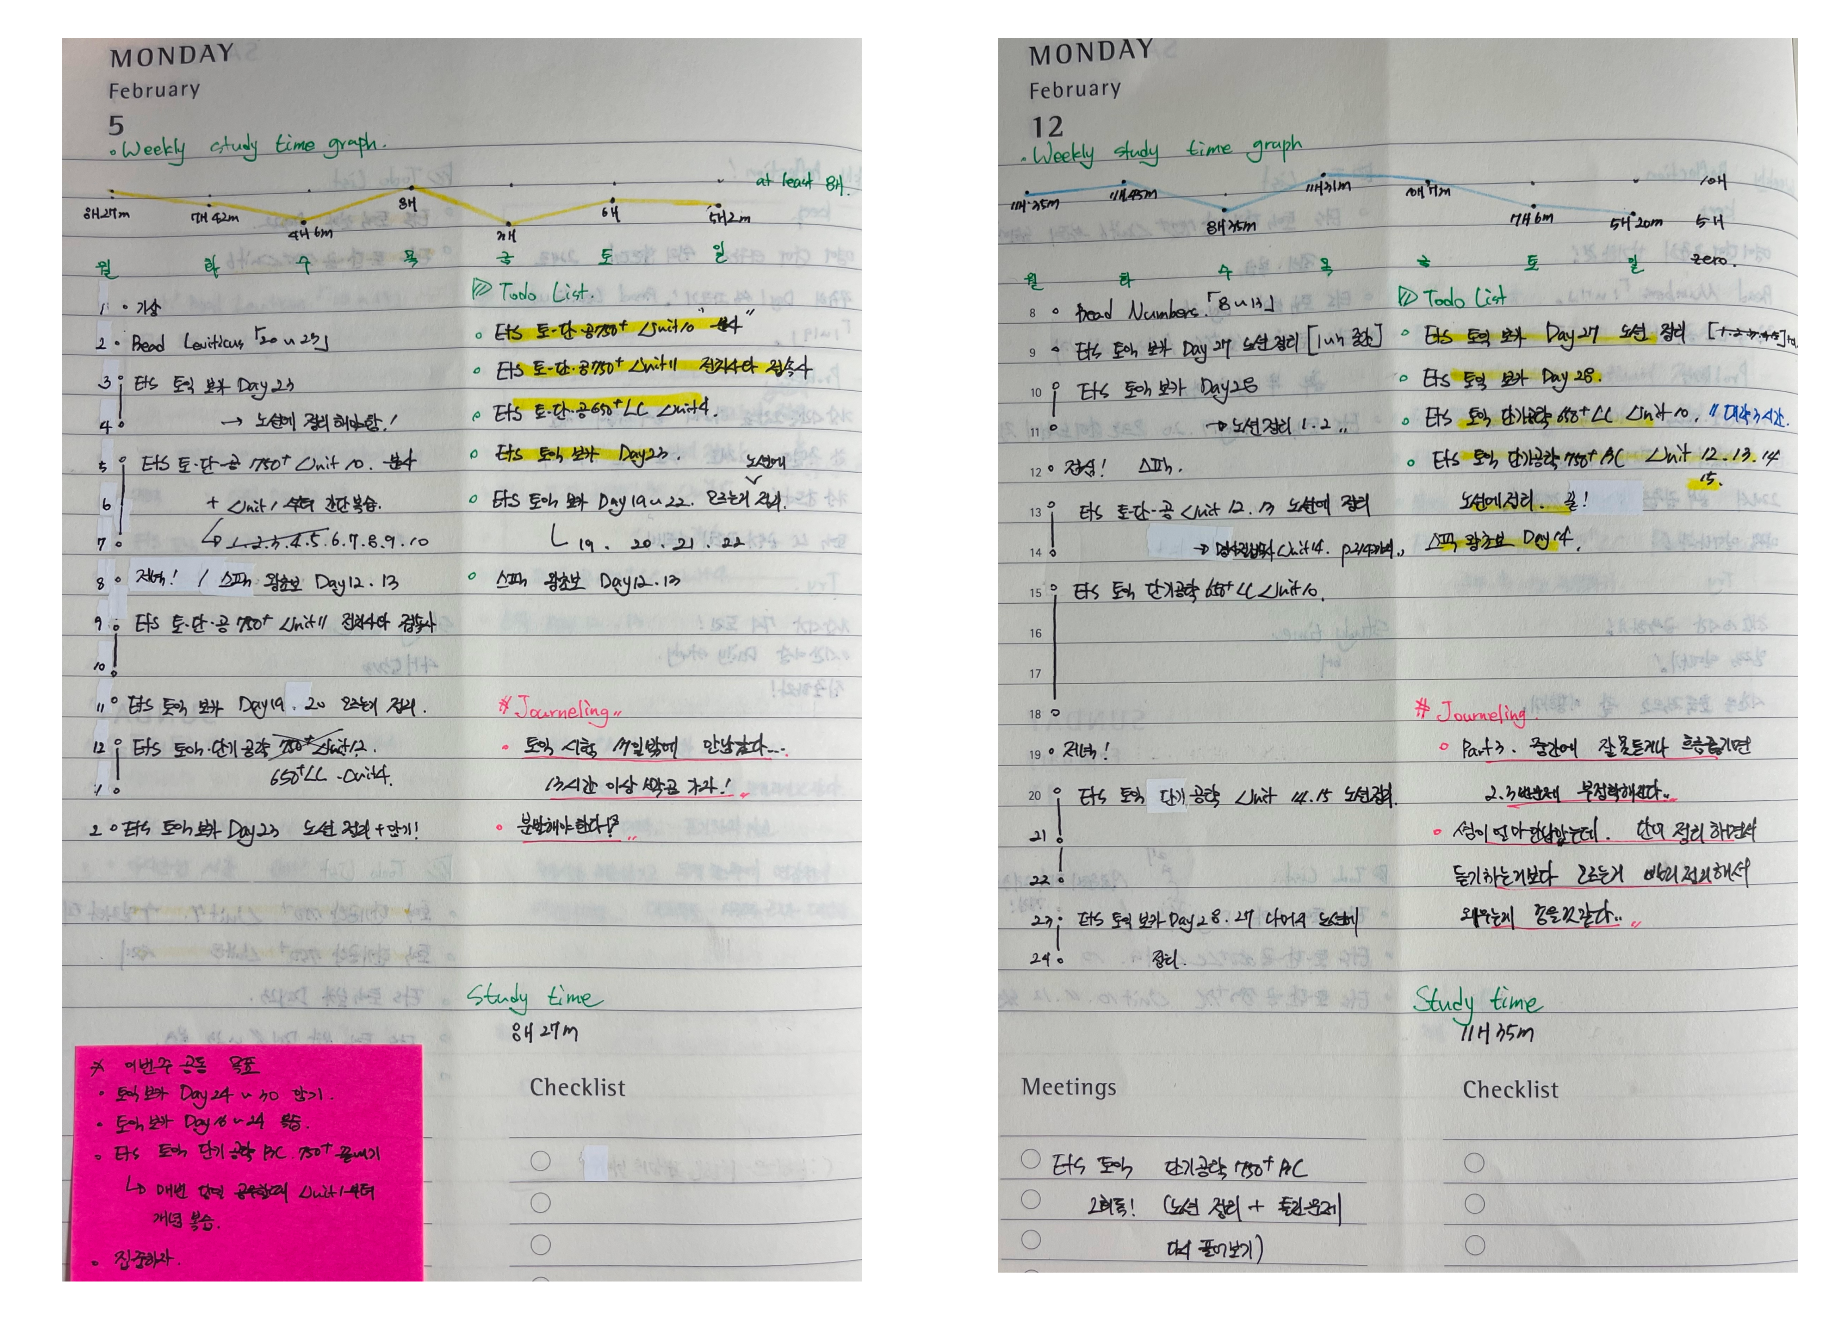 MONDAY
February
5
• Weekly study time graph.
at least 8H.
8H 27m 7H 42m 4H 6m 8H 3H 6H 5H 2m
월 화 수 목 금 토 일
1 기상
2 Read Leviticus 「20~23」
3 ETS 토익 보카 Day 23
4 → 노션에 정리해야함!
5 ETS 토·단·공 750+ Unit 10. 분사
6 + Unit 1 부터 간단 복습.
7 ↳ 1.2.3.4.5.6.7.8.9.10
8 저녁! / 스픽 왕초보 Day 12. 13
9 ETS 토·단·공 750+ Unit 11 전치사와 접속사
10
11 ETS 토익 보카 Day 19. 20 모르는거 정리.
12 ETS 토익·단기공략 750+ Unit 12.
650+ LC - Unit 4.
1
2 ETS 토익 보카 Day 23 노션 정리 + 암기!
Todo List.
ETS 토·단·공 750+ Unit 10 "분사"
ETS 토·단·공 750+ Unit 11 전치사와 접속사
ETS 토·단·공 650+ LC Unit 4.
ETS 토익 보카 Day 23.
노션에
ETS 토익 보카 Day 19~22. 모르는거 정리.
ㄴ 19. 20. 21. 22
스픽 왕초보 Day 12. 13
# Journeling..
• 토익 시험 밖에 안남았다...
13시간 이상 하고 자자!
• 분발해야한다!?
Study time
8H 27m
Checklist
※ 이번주 공동 목표
• 토익보카 Day 24~30 암기.
• 토익보카 Day 16~24 복습.
• ETS 토익 단기공략 RC 750+ 끝내기
↳ 매번 공부할때 Unit 1부터
개념 복습.
• 집중하자.
MONDAY
February
12
• Weekly study time graph
11H 35m 11H 45m 8H 35m 11H 31m 10H 7m 7H 6m 5H 20m
10H
5H
zero.
월 화 수 목 금 토 일
8 Read Numbers 「8~13」
9 ETS 토익 보카 Day 27 노션 정리
10 ETS 토익 보카 Day 28
11 → 노션정리 1. 2..
12 점심! 스픽.
13 ETS 토·단·공 Unit 12. 13 노션에 정리
14 Unit 14.
15 ETS 토익 단기공략 650+ LC Unit 10.
16
17
18
19 저녁!
20 ETS 토익 단기공략 Unit 14. 15 노션정리.
21
22
23 ETS 토익 보카 Day 28. 27 나머지 노션에
24 정리.
Todo List
ETS 토익 보카 Day 27 노션 정리
ETS 토익 보카 Day 28.
ETS 토익 단기공략 650+ LC Unit 10. " 대략 3시간.
ETS 토익 단기공략 750+ RC Unit 12. 13. 14
15.
노션에정리. 꼭!
스픽 왕초보 Day 14.
# Journeling.
• Part 3. 중간에 잘못듣거나 흐름놓기면
2.3번문제 부정확해진다..
• 시험이 얼마 안남았는데. 단어 정리하면서
듣기하는거보다 모르는거 빨리 정리해서
외우는게 좋을것같다..
Study time
11H 35m
Meetings
Checklist
ETS 토익 단기공략 750+ RC
2회독! (노션 정리 + 틀린문제
다시 풀어보기)